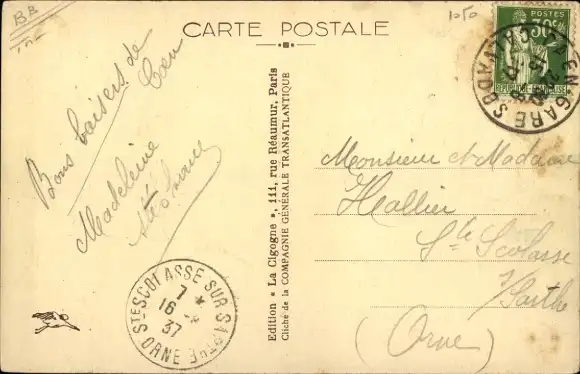 BR
1050
CARTE POSTALE
POSTES
RÉPUBLIQUE FRANÇAISE
EN GARE
Bons baisers de
Caen
Madeleine
Edition « La Cigogne », 111, rue Réaumur, Paris
Cliché de la COMPAGNIE GÉNÉRALE TRANSATLANTIQUE
Monsieur et Madame
Hallier
Ste Scolasse
s/ Sarthe
(Orne)
STE SCOLASSE SUR SARTHE
7
16
37
ORNE